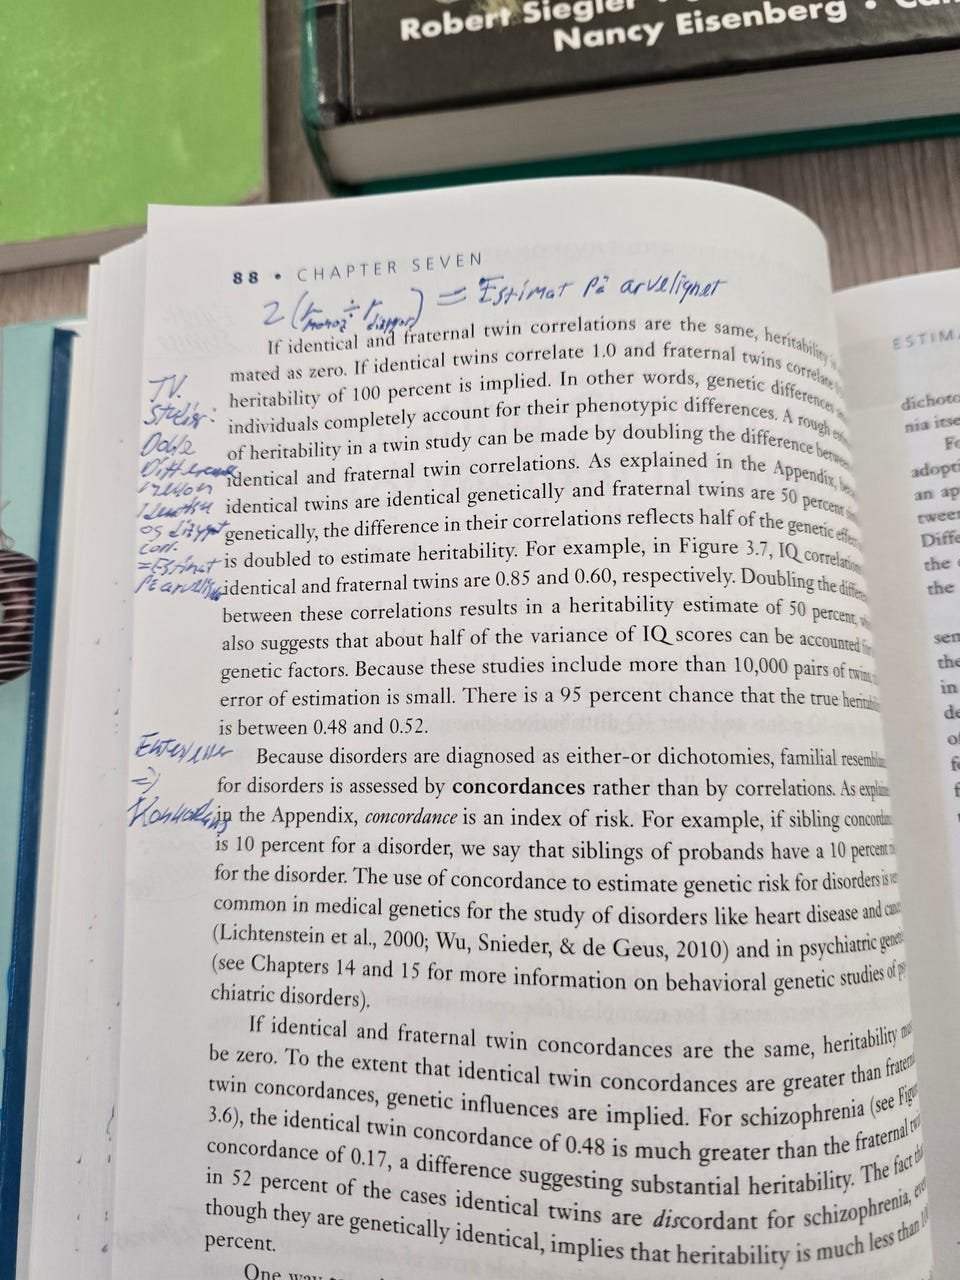 Robert Siegler •
Nancy Eisenberg •
88 • CHAPTER SEVEN
2 (r monoz ÷ r dizygot) = Estimat på arvelighet
If identical and fraternal twin correlations are the same, heritability is
mated as zero. If identical twins correlate 1.0 and fraternal twins correlate
heritability of 100 percent is implied. In other words, genetic differences
individuals completely account for their phenotypic differences. A rough
of heritability in a twin study can be made by doubling the difference between
identical and fraternal twin correlations. As explained in the Appendix,
identical twins are identical genetically and fraternal twins are 50 percent
genetically, the difference in their correlations reflects half of the genetic effect
is doubled to estimate heritability. For example, in Figure 3.7, IQ correlations
identical and fraternal twins are 0.85 and 0.60, respectively. Doubling the
between these correlations results in a heritability estimate of 50 percent,
also suggests that about half of the variance of IQ scores can be accounted
genetic factors. Because these studies include more than 10,000 pairs of twins,
error of estimation is small. There is a 95 percent chance that the true
is between 0.48 and 0.52.
Because disorders are diagnosed as either-or dichotomies, familial
for disorders is assessed by concordances rather than by correlations. As
in the Appendix, concordance is an index of risk. For example, if sibling
is 10 percent for a disorder, we say that siblings of probands have a 10 percent
for the disorder. The use of concordance to estimate genetic risk for disorders is
common in medical genetics for the study of disorders like heart disease and
(Lichtenstein et al., 2000; Wu, Snieder, & de Geus, 2010) and in psychiatric
(see Chapters 14 and 15 for more information on behavioral genetic studies of
chiatric disorders).
If identical and fraternal twin concordances are the same, heritability
be zero. To the extent that identical twin concordances are greater than
twin concordances, genetic influences are implied. For schizophrenia (see
3.6), the identical twin concordance of 0.48 is much greater than the fraternal
concordance of 0.17, a difference suggesting substantial heritability. The fact
in 52 percent of the cases identical twins are discordant for schizophrenia,
though they are genetically identical, implies that heritability is much less than
percent.
One way
TV.
Studier:
Doble
og dizygot
corr.
= Estimat
Enten/eller
=>
ESTIM
dichoto
nia itse
adopti
an ap
tween
Diffe
the
the
sen
the
in
de